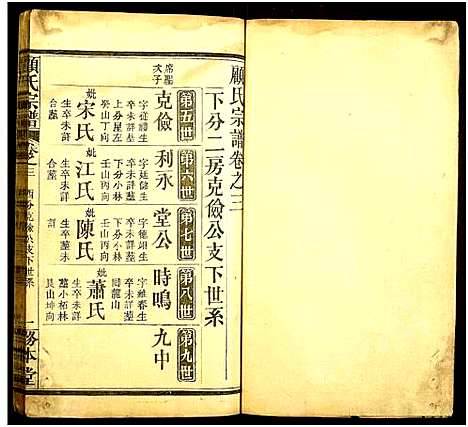 顧氏宗譜卷之三
下分二房克儉公支下世系
第五世
第六世
第七世
第八世
第九世
席聖次子
克儉
字從繩生
卒未詳墓
上分屋左
癸山丁向
妣
宋氏
生卒未詳
合墓
利永
字廷餘生
卒未詳墓
下分小林
壬山丙向
妣
江氏
生卒未詳
合墓
堂公
字德翊生
卒未詳墓
下分小林
壬山丙向
妣
陳氏
生卒墓未
詳
時鳴
字維春生
卒未詳墓
團龍山
妣
蕭氏
生卒未詳
墓小柘林
艮山坤向
九中
顧氏宗譜
卷之三
西分克儉公支下世系
一
務本堂